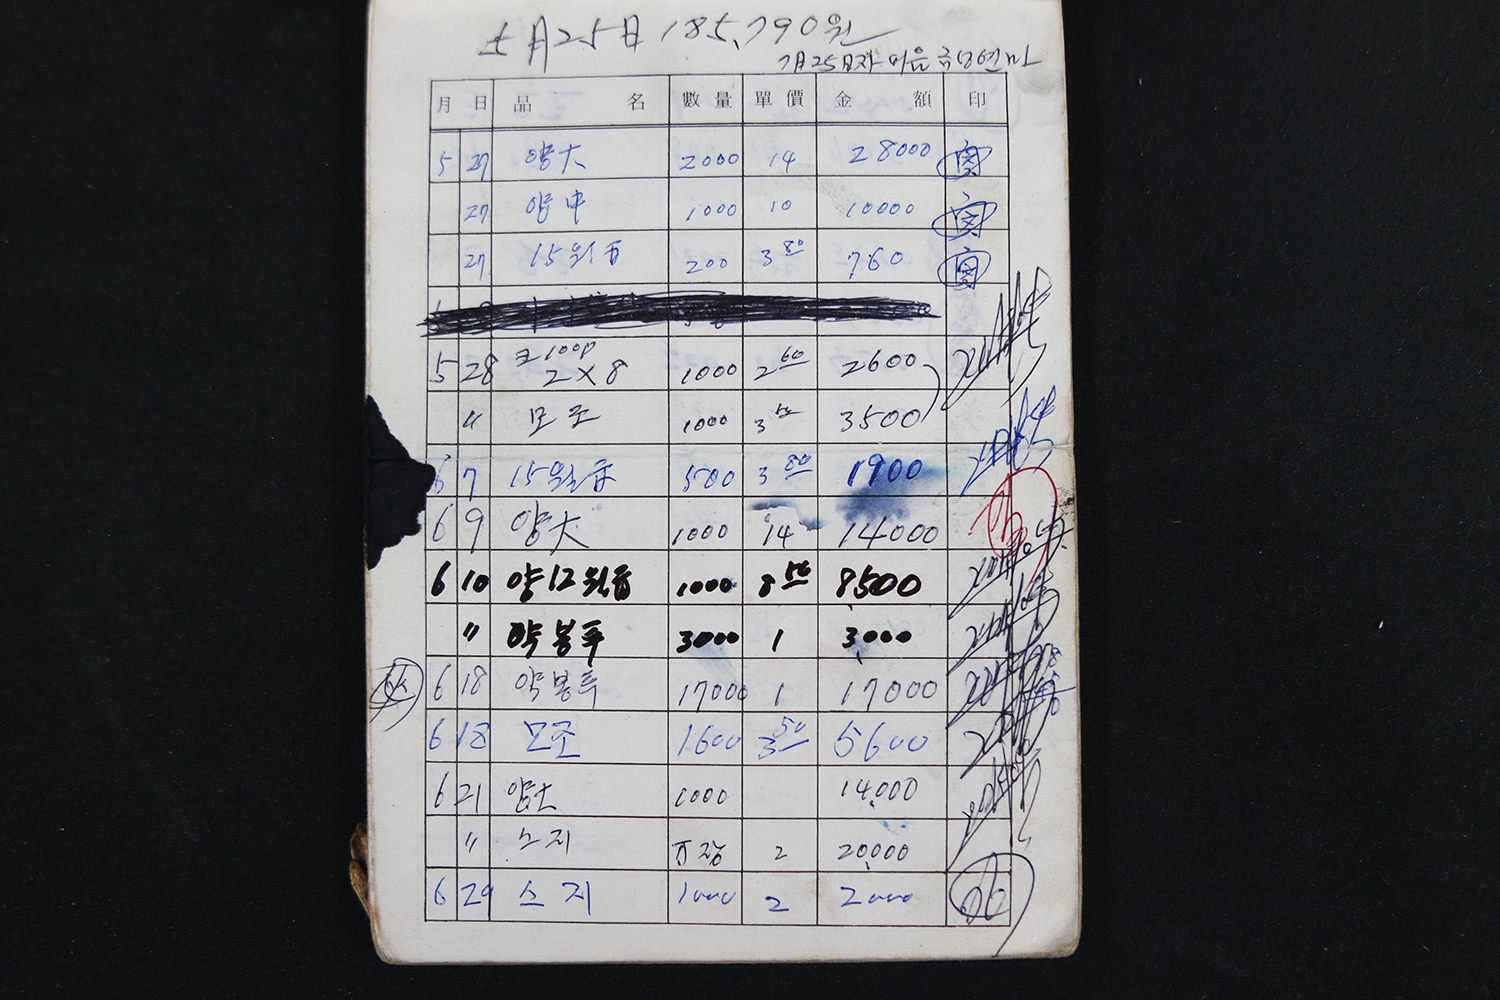 5月25日 185,790원
7月25日자 어음
月 日 品 名 數 量 單 價 金 額 印
5 27 양大 2000 14 28000
27 양中 1000 10 10000
27 15원 200 3 80 760
5 28 100P 2×8 1000 2 60 2600
〃 모조 1000 3 50 3500
6 7 15원 500 3 80 1900
6 9 양大 1000 14 14000
6 10 양12원 1000 8 50 8500
〃 약봉투 3000 1 3,000
6 18 약봉투 17000 1 17000
6 18 모조 1600 3 50 5600
6 21 양大 1000 14,000
〃 스지 万장 2 20,000
6 29 스지 1000 2 2000